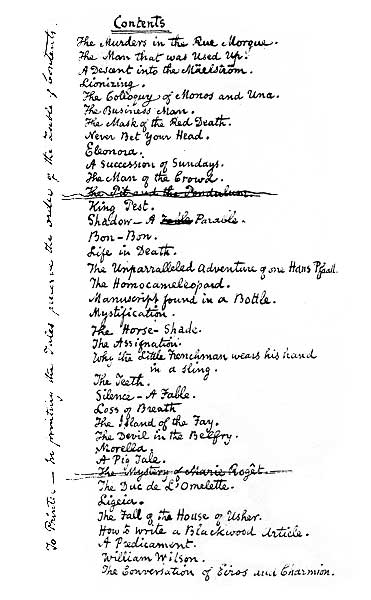 Contents
The Murders in the Rue Morgue.
The Man that was Used Up.
A Descent into the Mäelström.
Lionizing.
The Colloquy of Monos and Una.
The Business Man.
The Mask of the Red Death.
Never Bet Your Head.
Eleonora.
A Succession of Sundays.
The Man of the Crowd.
The Pit and the Pendulum.
King Pest.
Shadow — A Fable Parable.
Bon-Bon.
Life in Death.
The Unparralleled Adventure of one Hans Pfaall.
The Homocameleopard.
Manuscript found in a Bottle.
Mystification.
The Horse-Shade.
The Assignation.
Why the Little Frenchman wears his hand
in a sling.
The Teeth.
Silence — A Fable.
Loss of Breath
The Island of the Fay.
The Devil in the Belfry.
Morella.
A Pig Tale.
The Mystery of Marie Rogêt.
The Duc de L'Omelette.
Ligeia.
The Fall of the House of Usher.
How to write a Blackwood Article.
A Predicament.
William Wilson.
The Conversation of Eiros and Charmion.
To Printer — In printing the Tales preserve the order of the Table of Contents.